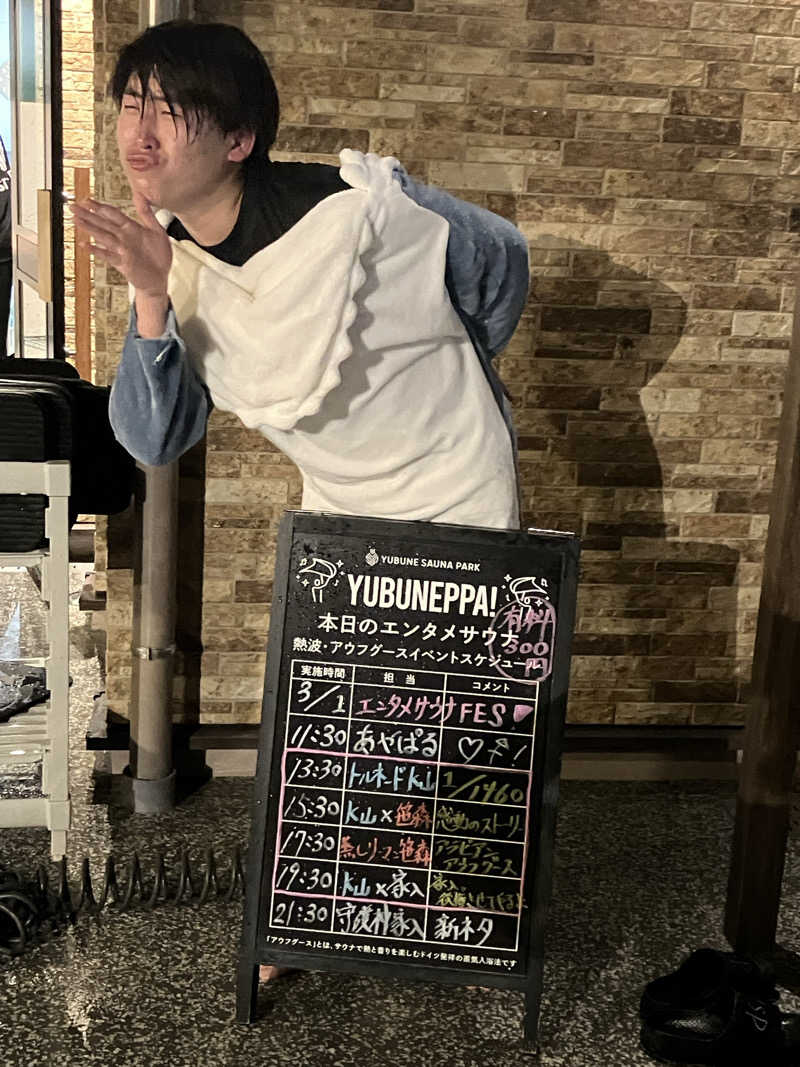 YUBUNE SAUNA PARK
YUBUNEPPA!
本日のエンタメサウナ
熱波・アウフグースイベントスケジュール
有料
300
円
実施時間 担当 コメント
3/1 エンタメサウナFES
11:30 あやぱる ♡ !
13:30 トルネードK山 1/1460
15:30 K山×笹森 感動のストーリー
17:30 蒸しリーマン笹森 アラビアンアウフグース
19:30 K山×家入 家入。
21:30 守護神家入 新ネタ
「アウフグース」とは、サウナで熱と香りを楽しむドイツ発祥の蒸気入浴法です